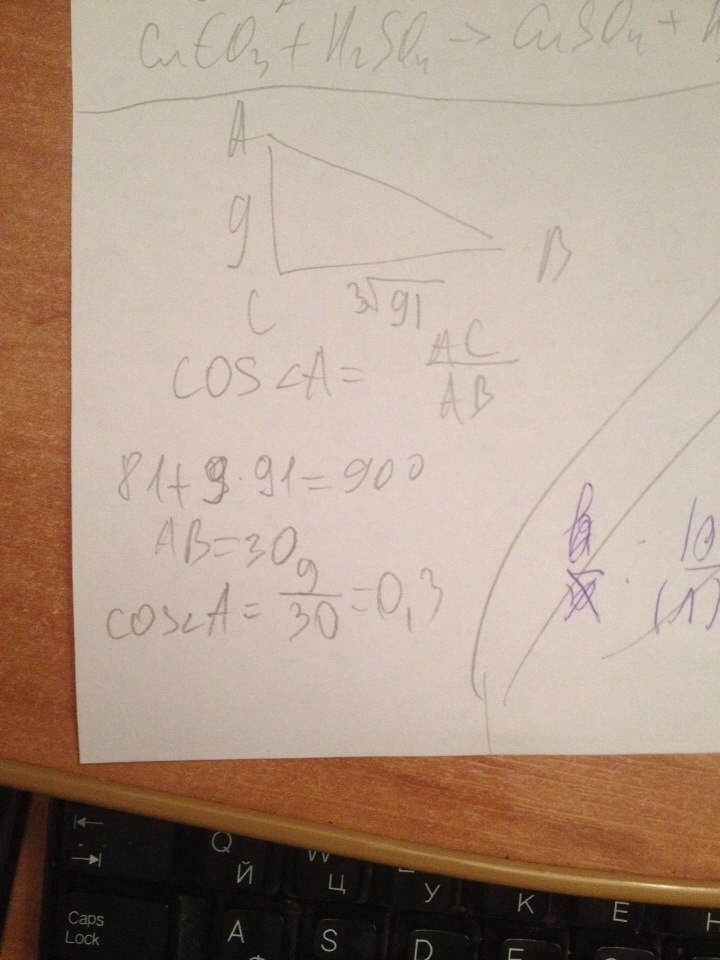 CuCO₃ + H₂SO₄ → CuSO₄ +
A
9
B
C
3√91
cos∠A = AC/AB
81+9·91=900
AB=30
cos∠A = 9/30 = 0,3
10
(1)
Q W
Й Ц У К Е Н
Caps Lock
A S D